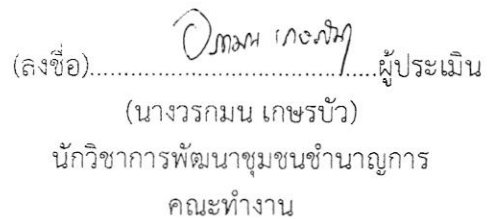 (ลงชื่อ)..........วรกมน เกษรบัว..........ผู้ประเมิน
(นางวรกมน เกษรบัว)
นักวิชาการพัฒนาชุมชนชำนาญการ
คณะทำงาน